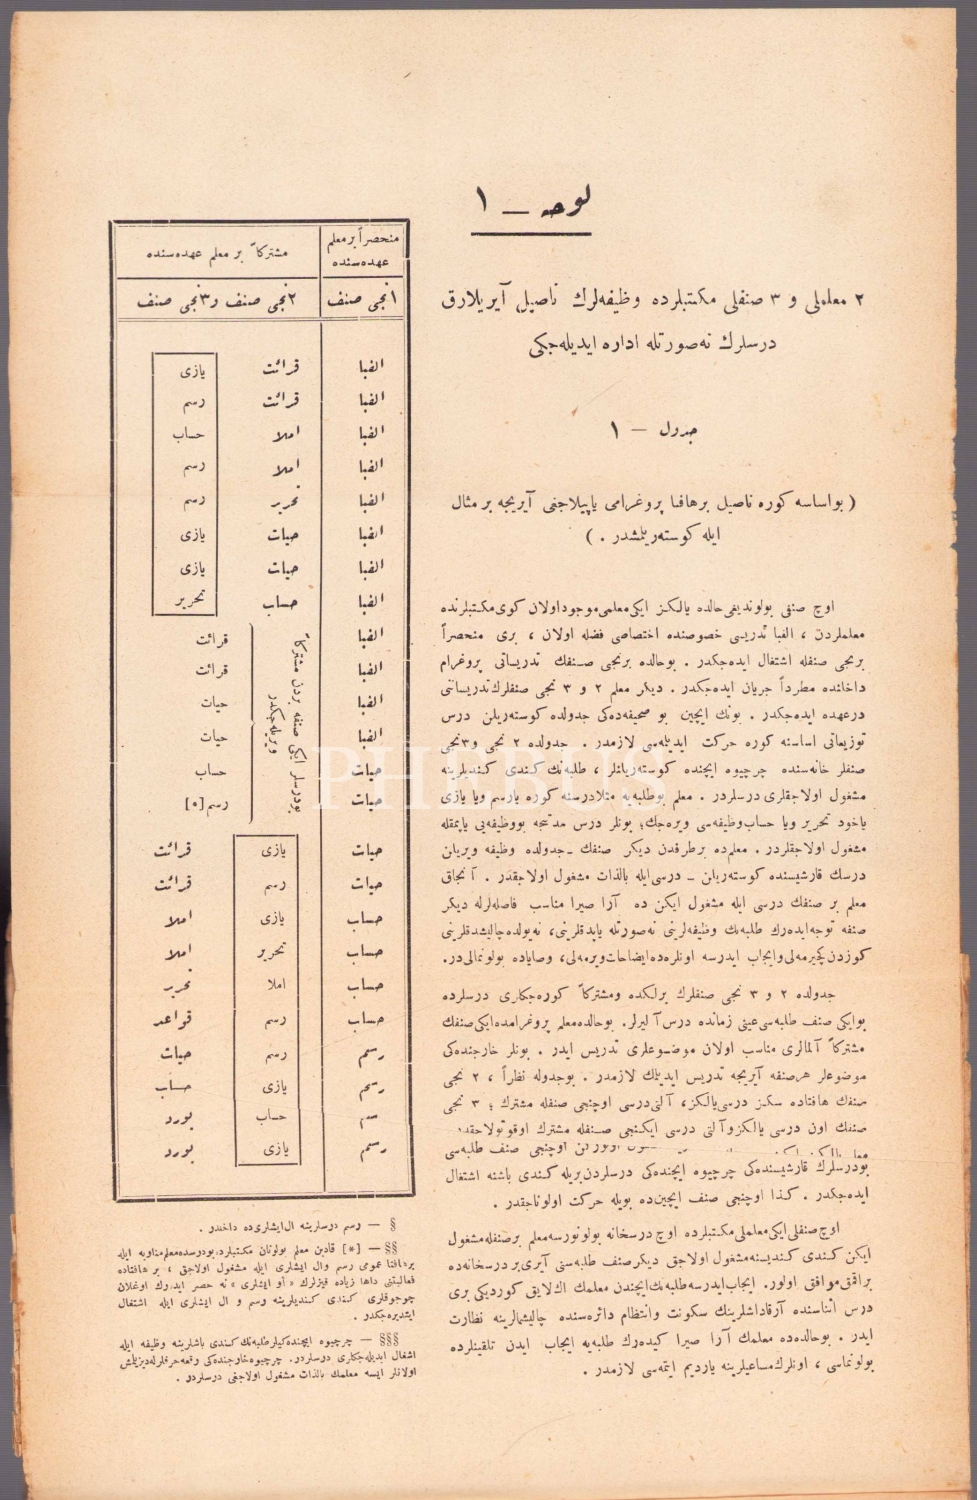 لوحه — ١
٢ معلملی و ٣ صنفلی مکتبلرده وظیفه‌لرك ناصیل آیریلارق
درسلرك نه‌صورتله اداره ایدیله‌جکی
جدول — ١
( بواساسه کوره ناصیل برهافتا پروغرامی یاپیلاجغی آیریجه بر مثال
ایله کوسته‌ریلمشدر . )
اوچ صنفی بولوندیغی حالده یالکز ایکی معلمی موجود اولان کوی مکتبلرنده
معلملردن ، الفبا تدریسی خصوصنده اختصاصی فضله اولان ، بری منحصراً
برنجی صنفله اشتغال ایده‌جکدر . بوحالده برنجی صنفك تدریساتی پروغرام
داخلنده مطرداً جریان ایده‌جکدر . دیکر معلم ٢ و ٣ نجی صنفلرك تدریساتنی
درعهده ایده‌جکدر . بونك ایچین بو صحیفه‌ده‌کی جدولده کوسته‌ریلن درس
توزیعاتی اساسنه کوره حرکت ایدیلمه‌سی لازمدر . جدولده ٢ نجی و٣نجی
صنفلر خانه‌سنده چرچیوه ایچنده کوسته‌ریلنلر ، طلبه‌نك کندی کندیلرینه
مشغول اولاجقلری درسلردر . معلم بوطلبه‌یه مثلا درسنه کوره یارسم ویا یازی
یاخود تحریر ویا حساب وظیفه‌سی ویره‌جك؛ بونلر درس مدتنجه بووظیفه‌یی یاپمقله
مشغول اولاجقلردر . معلم‌ده برطرفدن دیکر صنفك ـ جدولده وظیفه ویریلن
درسك قارشیسنده کوسته‌ریلن ـ درسی ایله بالذات مشغول اولاجقدر . آنجاق
معلم بر صنفك درسی ایله مشغول ایکن ده آرا صیرا مناسب فاصله‌لرله دیکر
صنفه توجه ایده‌رك طلبه‌نك وظیفه‌لرینی نه‌صورتله یاپدقلرینی، نه‌یولده چالیشدقلرینی
کوزدن کچیرمه‌لی و ایجاب ایدرسه اونلره‌ده ایضاحات ویرمه‌لی، وصایاده بولونمالی‌در.
جدولده ٢ و ٣ نجی صنفلرك برلکده ومشترکاً کوره‌جکلری درسلرده
بوایکی صنف طلبه‌سی عینی زمانده درس آلیرلر. بوحالده معلم پروغرامده ایکی صنفك
مشترکاً آلمالری مناسب اولان موضوعلری تدریس ایدر . بونلر خارجنده‌کی
موضوعلر هرصنفه آیریجه تدریس ایدیلمك لازمدر . بوجدوله نظراً ، ٢ نجی
صنفك هافتاده سکز درسی یالکز، آلتی درسی اوچنجی صنفله مشترك ؛ ٣ نجی
صنفك اون درسی یالکز و آلتی درسی ایکنجی صنفله مشترك اوقوتولاجقدر.
اوچنجی صنف طلبه‌سی
بودرسلرك قارشیسنده‌کی چرچیوه ایچنده‌کی درسلردن بریله کندی باشنه اشتغال
ایده‌جکدر . کذا اوچنجی صنف ایچین‌ده بویله حرکت اولوناجقدر .
اوچ صنفلی ایکی معلملی مکتبلرده اوچ درسخانه بولونورسه معلم برصنفله مشغول
ایکن کندی کندیسنه مشغول اولاجق دیکر صنف طلبه‌سنی آیری بر درسخانه‌ده
براقمق موافق اولور. ایجاب ایدرسه طلبه‌نك ایچندن معلمك اك لایق کوردیکی بری
درس اثناسنده آرقاداشلرینك سکونت وانتظام دائره‌سنده چالیشمالرینه نظارت
ایدر . بوحالده‌ده معلمك آرا صیرا کیده‌رك طلبه‌یه ایجاب ایدن تلقینلرده
بولونماسی ، اونلرك مساعیلرینه یاردیم ایتمه‌سی لازمدر .
منحصراً بر معلم عهده‌سنده
مشترکاً بر معلم عهده‌سنده
١نجی صنف
٢نجی صنف و ٣نجی صنف
الفبا قرائت یازی
الفبا قرائت رسم
الفبا املا حساب
الفبا املا رسم
الفبا تحریر رسم
الفبا حیات یازی
الفبا حیات یازی
الفبا حساب تحریر
الفبا قرائت
الفبا قرائت
الفبا حیات
الفبا حیات
حیات حساب
حیات رسم [*]
بودرسلر ایکی صنفه بردن مشترکاً
ویریله‌جکدر
حیات یازی قرائت
حیات رسم قرائت
حساب یازی املا
حساب تحریر املا
حساب املا تحریر
حساب رسم قواعد
رسم رسم حیات
رسم یازی حساب
رسم حساب یورد
رسم یازی یورد
§ — رسم درسلرینه ال ایشلری‌ده داخلدر .
§§ — [*] قادین معلم بولونان مکتبلرده، بودرسده معلم مناوبه ایله
برهافتا عمومی رسم و ال ایشلری ایله مشغول اولاجق ، بر هافتاده
فعالیتنی داها زیاده قیزلرك «أو ایشلری» نه حصر ایده‌رك اوغلان
چوجوقلری کندی کندیلرینه رسم و ال ایشلری ایله اشتغال
ایتدیره‌جکدر .
§§§ — چرچیوه ایچنده‌کیلر طلبه‌نك کندی باشلرینه وظیفه ایله
اشغال ایدیله‌جکلری درسلردر. چرچیوه خارجنده‌کی رقعه حرفلرله دیزیلمش
اولانلر ایسه معلمك بالذات مشغول اولاجغی درسلردر .
PHEBUS